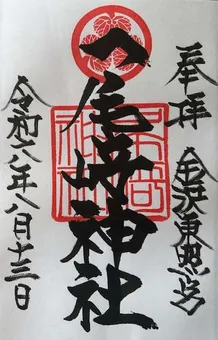 奉拝
金沢東照宮
尾﨑神社
令和六年八月十三日